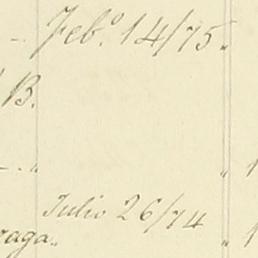 Feb.º 14/75 „
B.
„
Julio 26/74
raga.. „